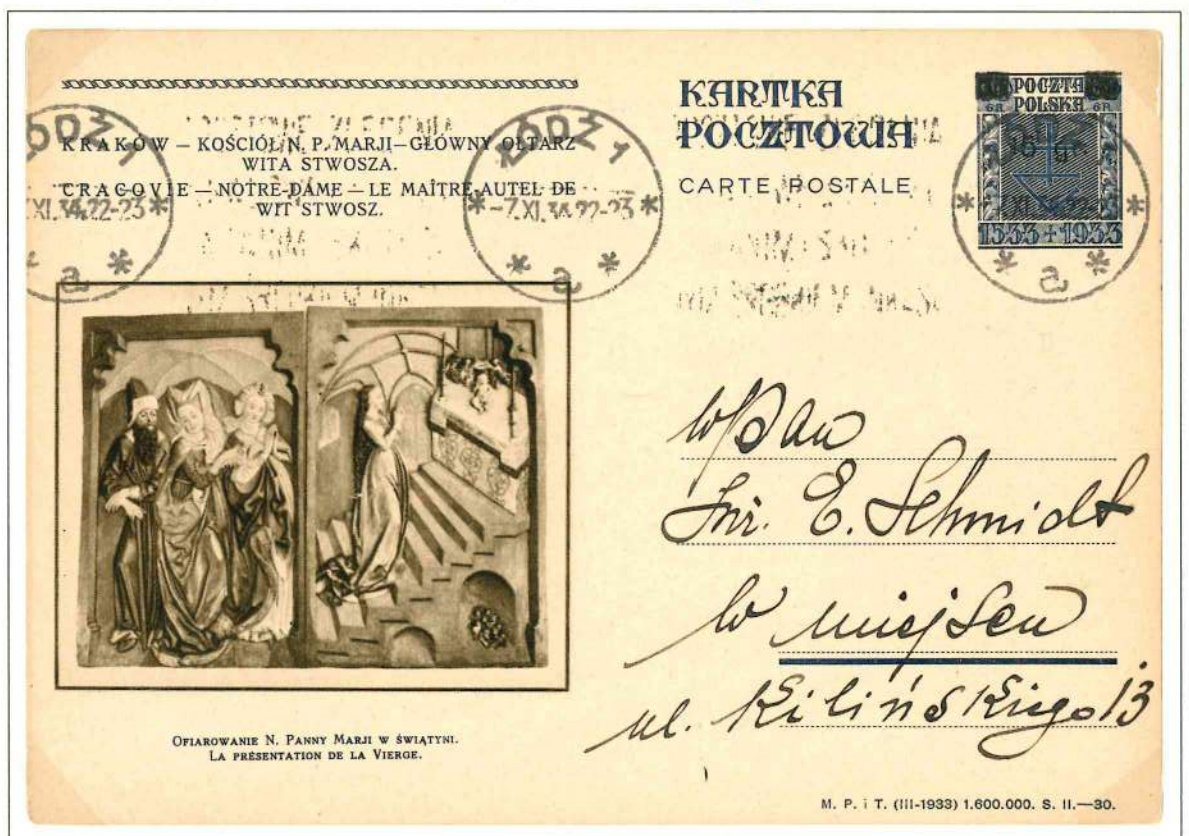 KRAKÓW – KOŚCIÓŁ N. P. MARJI – GŁÓWNY OŁTARZ
WITA STWOSZA.
CRACOVIE – NOTRE-DAME – LE MAÎTRE-AUTEL DE
WIT STWOSZ.
KARTKA
POCZTOWA
CARTE POSTALE
POCZTA
POLSKA
GR. GR.
1533+1933
ŁÓDŹ 1
XI.34.22-23
a
ŁÓDŹ 1
-7.XI.34.22-23
a
a
WPan
Inż. E. Schmidt
w miejscu
ul. Kilińskiego 13
OFIAROWANIE N. PANNY MARJI W ŚWIĄTYNI.
LA PRÉSENTATION DE LA VIERGE.
M. P. i T. (III-1933) 1.600.000. S. II.—30.